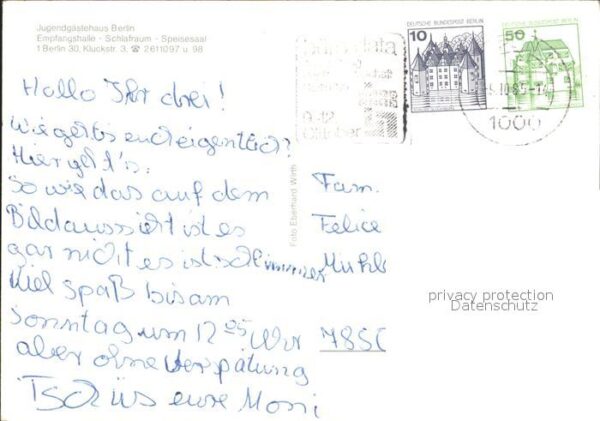 Jugendgästehaus Berlin
Empfangshalle - Schlafraum - Speisesaal
1 Berlin 30, Kluckstr. 3, ☎ 2611097 u. 98
DEUTSCHE BUNDESPOST BERLIN
10
DEUTSCHE BUNDESPOST BERLIN
50
9.-12.
Oktober
1000
Hallo Ihr drei!
Wie geht's euch eigentlich?
Hier geht's.
So wie das auf dem
Bild aussieht ist es
gar nicht es ist schlimmer
Viel Spaß bis am
Sonntag um 12 05 Uhr
aber ohne Verspätung
Tschüs eure Moni
Foto Eberhard Wirth
Fam.
Felice
785
privacy protection
Datenschutz